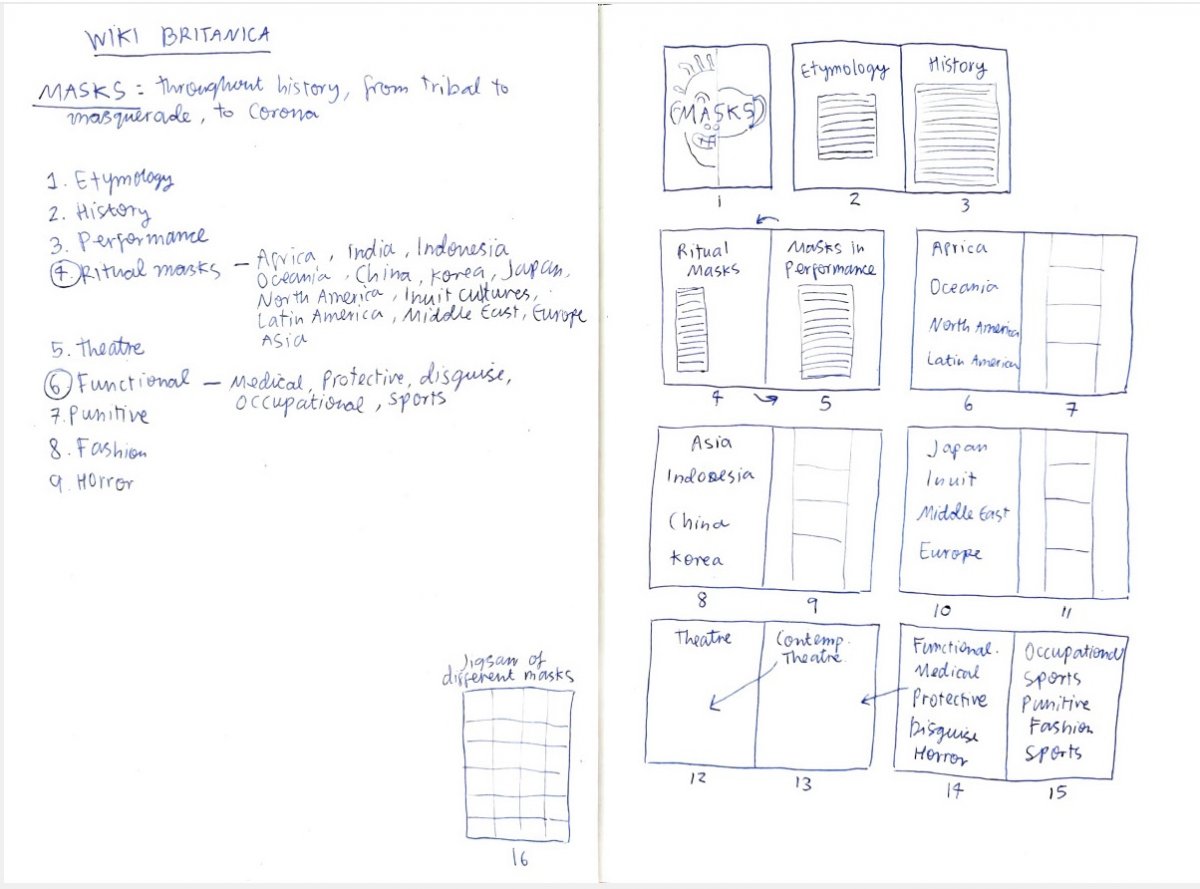 WIKI BRITANICA
MASKS: throughout history, from tribal to
masquerade, to Corona
1. Etymology
2. History
3. Performance
4. Ritual masks - Africa, India, Indonesia
Oceania, China, Korea, Japan,
North America, Inuit cultures,
Latin America, Middle East, Europe
Asia
5. Theatre
6. Functional - Medical, Protective, disguise,
Occupational, Sports
7. Punitive
8. Fashion
9. Horror
Jigsaw of
different masks
16
MASKS
1
Etymology
2
History
3
Ritual
Masks
4
Masks in
Performance
5
Africa
Oceania
North America
Latin America
6
7
Asia
Indonesia
China
Korea
8
9
Japan
Inuit
Middle East
Europe
10
11
Theatre
12
Contemp.
Theatre
13
Functional.
Medical
Protective
Disguise
Horror
14
Occupational
Sports
Punitive
Fashion
Sports
15